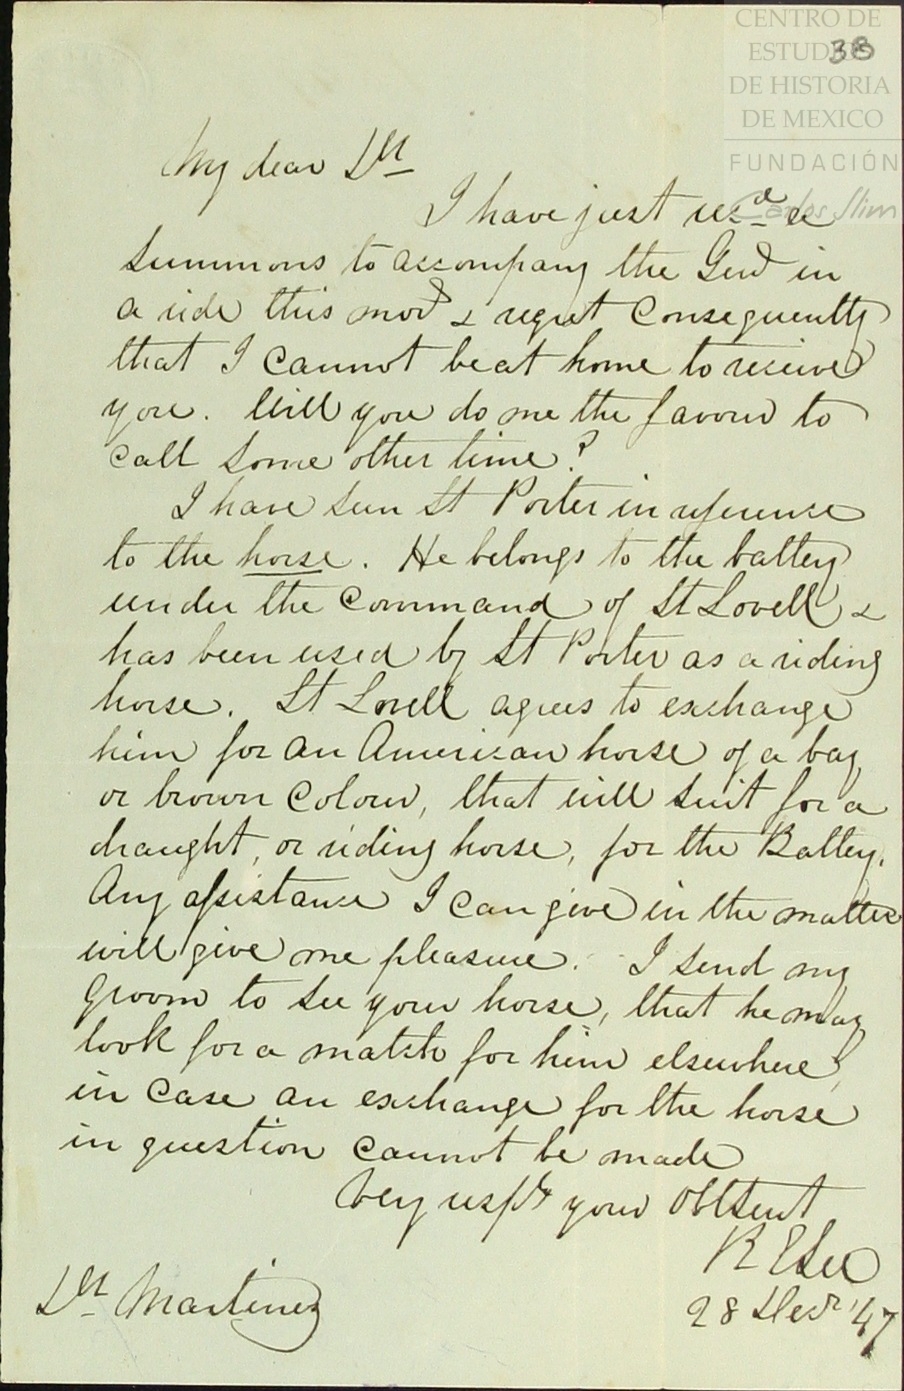 CENTRO DE
ESTUDIOS
DE HISTORIA
DE MEXICO
FUNDACIÓN
Carlos Slim
38
My dear Dr
I have just recd a
summons to accompany the Genl in
a ride this morg & regret consequently
that I cannot be at home to receive
you. Will you do me the favour to
call some other time?
I have seen Lt Porter in reference
to the horse. He belongs to the battery
under the command of Lt Lovell &
has been used by Lt Porter as a riding
horse. Lt Lovell agrees to exchange
him for an American horse of a bay
or brown colour, that will suit for a
draught, or riding horse, for the Battery.
Any assistance I can give in the matter
will give me pleasure. I send my
groom to see your horse, that he may
look for a match for him elsewhere,
in case an exchange for the horse
in question cannot be made
Very respty your obtsevt
R E Lee
28 Decr '47
Dr Martinez